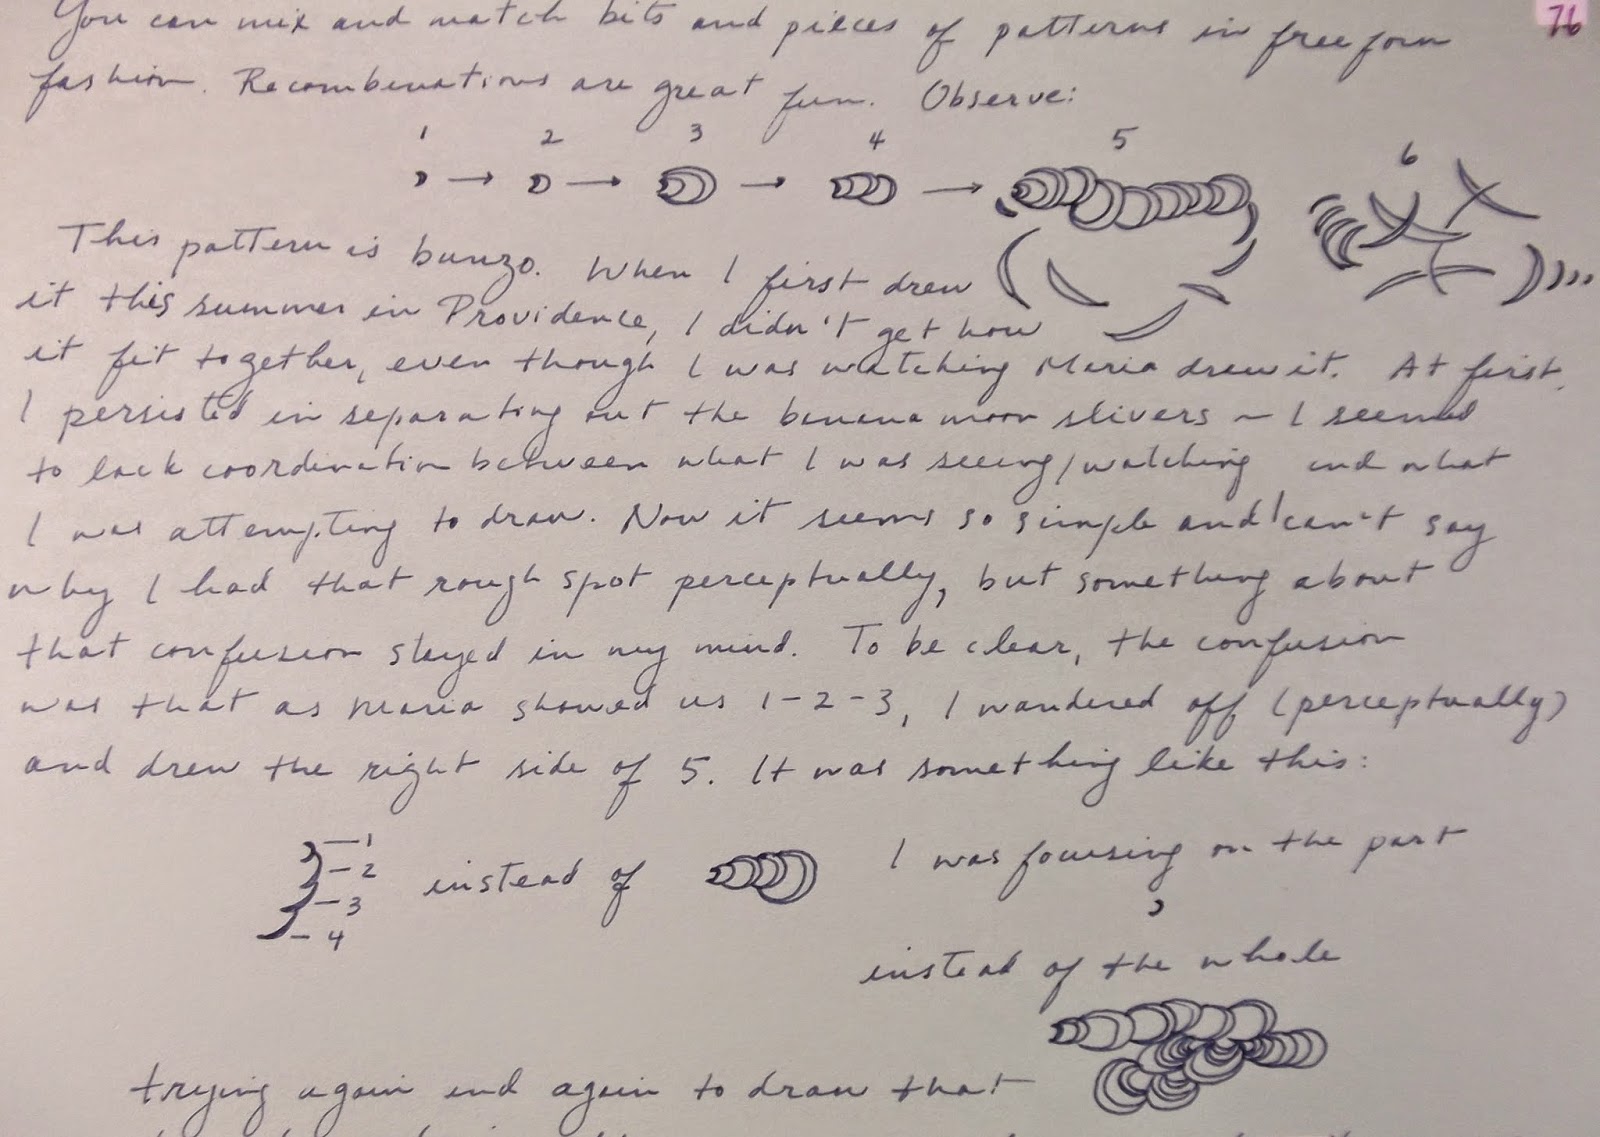 You can mix and match bits and pieces of patterns in free form
76
fashion. Recombinations are great fun. Observe:
1 2 3 4 5 6
This pattern is bunzo. When I first drew
it this summer in Providence, I didn't get how
it fit together, even though I was watching Maria drew it. At first,
I persisted in separating out the banana moon slivers ~ I seemed
to lack coordination between what I was seeing/watching and what
I was attempting to draw. Now it seems so simple and I can't say
why I had that rough spot perceptually, but something about
that confusion stayed in my mind. To be clear, the confusion
was that as Maria showed us 1-2-3, I wandered off (perceptually)
and drew the right side of 5. It was something like this:
-1
-2
-3
-4
instead of
I was focusing on the part
instead of the whole
trying again and again to draw that